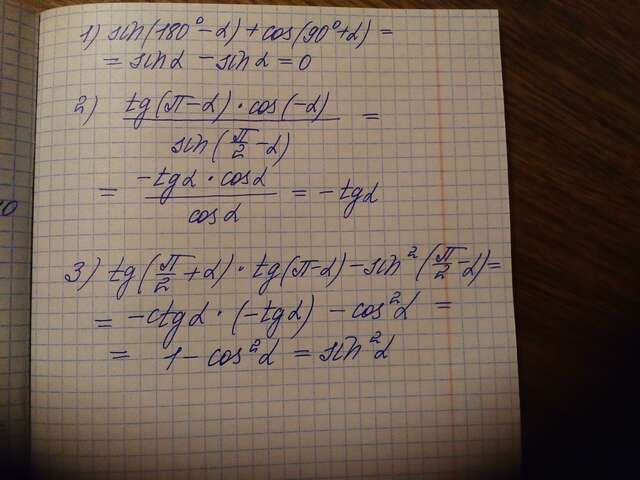 1) sin(180°-α)+cos(90°+α)=
= sinα - sinα = 0
2) tg(π-α)·cos(-α) / sin(π/2-α) =
= -tgα·cosα / cosα = -tgα
3) tg(π/2+α)·tg(π-α)-sin²(π/2-α)=
= -ctgα·(-tgα) - cos²α =
= 1-cos²α = sin²α